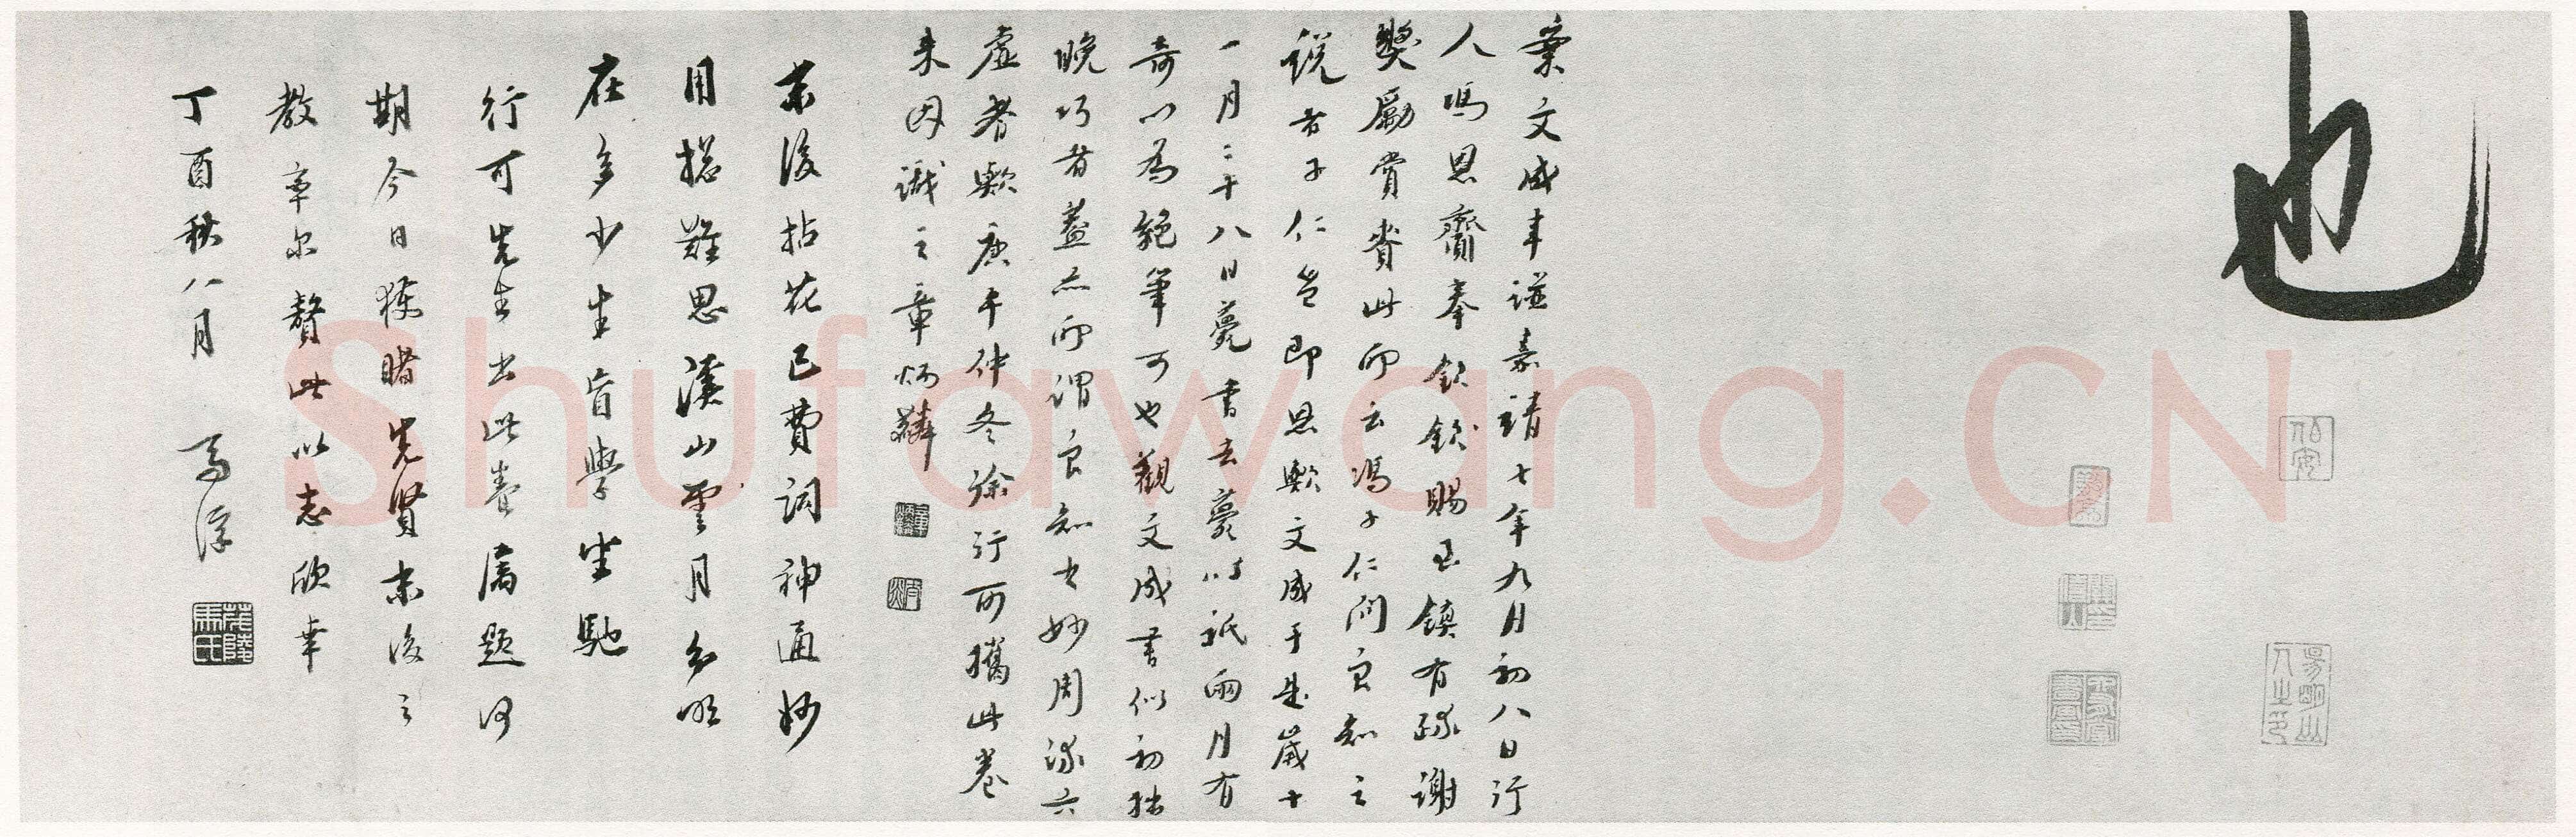 也
案文成年谱嘉靖七年九月初八日行
人馮恩齎奉欽欽賜玉鎮有疏謝
獎勵賞賚此所云馮子仁問良知之
說者子仁豈即恩歟文成于是歲十
一月二十八日薨書去薨時祇兩月有
奇以為絕筆可也觀文成書似初拙
晚巧者蓋亦所謂良知之妙周流六
虛者歟庚午仲冬徐行可攜此卷
來因識之章炳麟
末後拈花已費詞神通妙
用擬難思溪山雲月分明
在多少生盲學坐馳
行可先生出此卷屬題何
期今日獲睹先賢末後之
教率尔贅此以志欣幸
丁酉秋八月 馬浮
茂陵馬氏
Shufawang.CN